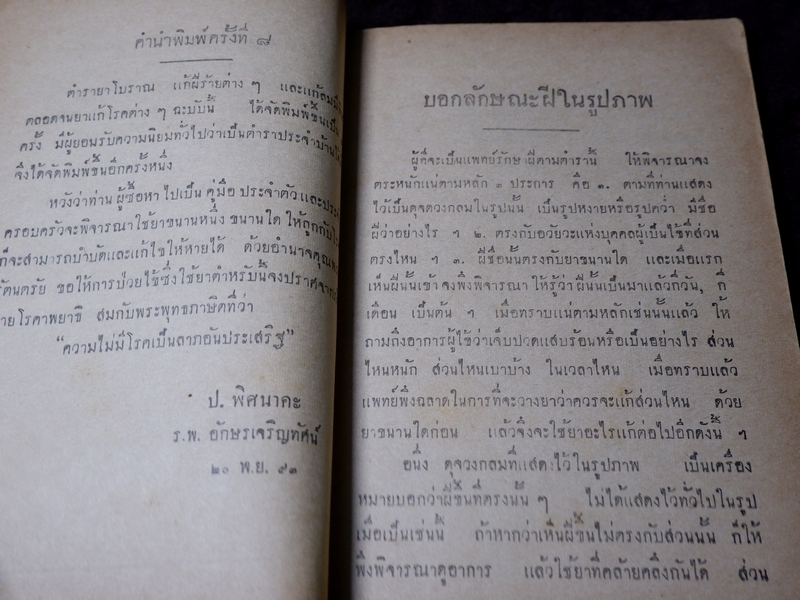 คำนำพิมพ์ครั้งที่ ๘
ตำรายาโบราณ แก้ฝีร้ายต่าง ๆ และแก้ลม
ตลอดจนยาแก้โรคต่าง ๆ ฉะบับนี้ ได้จัดพิมพ์ขึ้นเป็น
ครั้ง มีผู้ยอมรับความนิยมทั่วไปว่าเป็นตำราประจำบ้าน
จึงได้จัดพิมพ์ขึ้นอีกครั้งหนึ่ง
หวังว่าท่าน ผู้ซื้อหา ไปเป็น คู่มือ ประจำตัว และ
ครอบครัวจะพิจารณาใช้ยาขนานหนึ่ง ขนานใด ให้ถูกกับ
ก็จะสามารถบำบัดและแก้ไขให้หายได้ ด้วยอำนาจคุณ
รัตนตรัย ขอให้การป่วยไข้ซึ่งใช้ยาตำหรับนี้จงปราศจาก
โรคาพยาธิ สมกับพระพุทธภาษิตที่ว่า
“ความไม่มีโรคเป็นลาภอันประเสริฐ”
ป. พิศนาคะ
ร.พ. อักษรเจริญทัศน์
๒๐ พ.ย. ๙๓
บอกลักษณะฝีในรูปภาพ
ผู้ที่จะเป็นแพทย์รักษาฝีตามตำรานี้ ให้พิจารณาจง
ตระหนักแน่ตามหลัก ๓ ประการ คือ ๑. ตามที่ท่านแสดง
ไว้เป็นดุจดวงกลมในรูปนั้น เป็นรูปหงายหรือรูปคว่ำ มีชื่อ
ฝีว่าอย่างไร ๆ ๒. ตรงกับอวัยวะแห่งบุคคลผู้เป็นไข้ที่ส่วน
ตรงไหน ๆ ๓. ฝีชื่อนั้นตรงกับยาขนานใด และเมื่อแรก
เห็นฝีนั้นเข้า จงพึงพิจารณา ให้รู้ว่า ฝีนั้นเป็นมาแล้วกี่วัน, กี่
เดือน เป็นต้น ๆ เมื่อทราบแน่ตามหลักเช่นนั้นแล้ว ให้
ถามถึงอาการผู้ไข้ว่าเจ็บปวดแสบร้อนหรือเป็นอย่างไร ส่วน
ไหนหนัก ส่วนไหนเบาบาง ในเวลาไหน เมื่อทราบแล้ว
แพทย์พึงฉลาดในการที่จะวางยาว่าควรจะแก้ส่วนไหน ด้วย
ยาขนานใดก่อน แล้วจึงจะใช้ยาอะไรแก้ต่อไปอีกดังนี้ ๆ
อนึ่ง ดุจวงกลมที่แสดงไว้ในรูปภาพ เป็นเครื่อง
หมายบอกว่าฝีขึ้นที่ตรงนั้น ๆ ไม่ได้แสดงไว้ทั่วไปในรูป
เมื่อเป็นเช่นนี้ ถ้าหากว่าเห็นฝีขึ้นไม่ตรงกับส่วนนั้น ก็ให้
พึงพิจารณาดูอาการ แล้วใช้ยาที่คล้ายคลึงกันได้ ส่วน